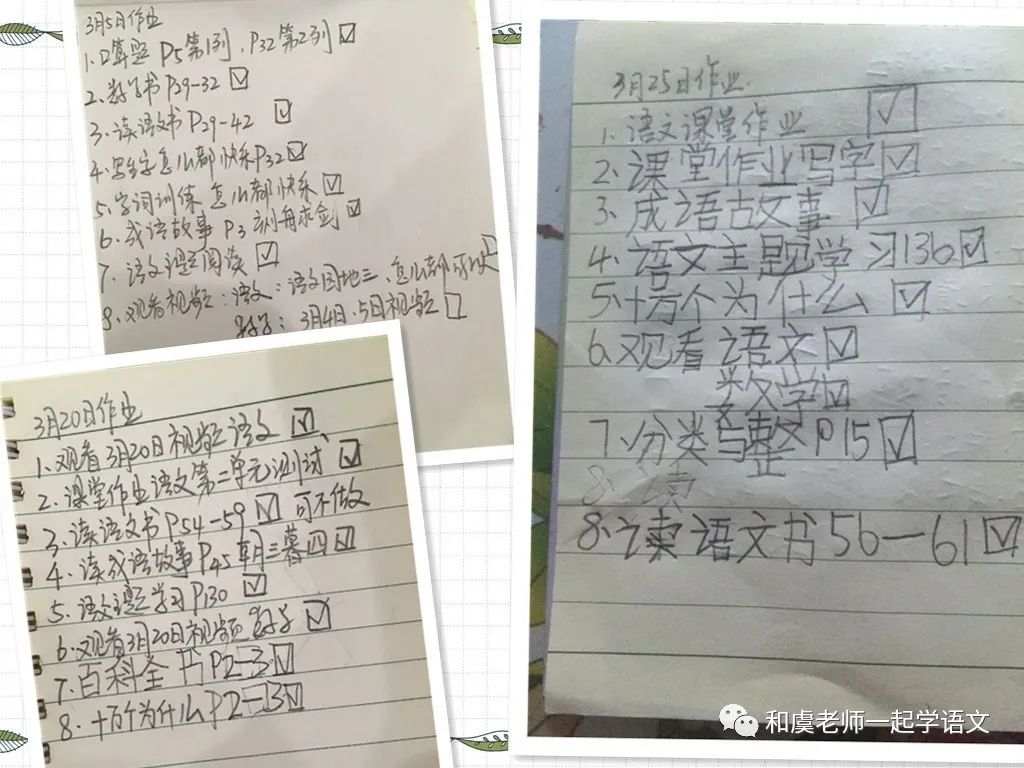 3月5日作业
1、口算题 P5第1列、P32第2列 ☑
2、数学书 P29-32 ☑
3、读语文书 P29-42 ☑
4、写生字怎么都快乐P32☑
5、字词训练 怎么都快乐 ☑
6、成语故事 P3 刻舟求剑 ☑
7、语文课外阅读 ☑
8、观看视频：语文：语文园地三、怎么都可以 □
数学：3月4日、5日视频 □
3月20日作业
1、观看3月20日视频语文 ☑
2、课堂作业语文第二单元测试 ☑
3、读语文书 P54-59 ☑ 可不做
4、读成语故事P45朝三暮四 ☑
5、语文主题学习P130 ☑
6、观看3月20日视频 数学 ☑
7、百科全书P2-3☑
8、十万个为什么P2-3☑
3月25日作业
1、语文课堂作业 ☑
2、课堂作业写字☑
3、成语古文事 ☑
4、语文主题学习136☑
5、十万个为什么 ☑
6、观看语文☑
数学☑
7、分类与整 P15☑
8、读
8、读语文书56—61☑
和虞老师一起学语文